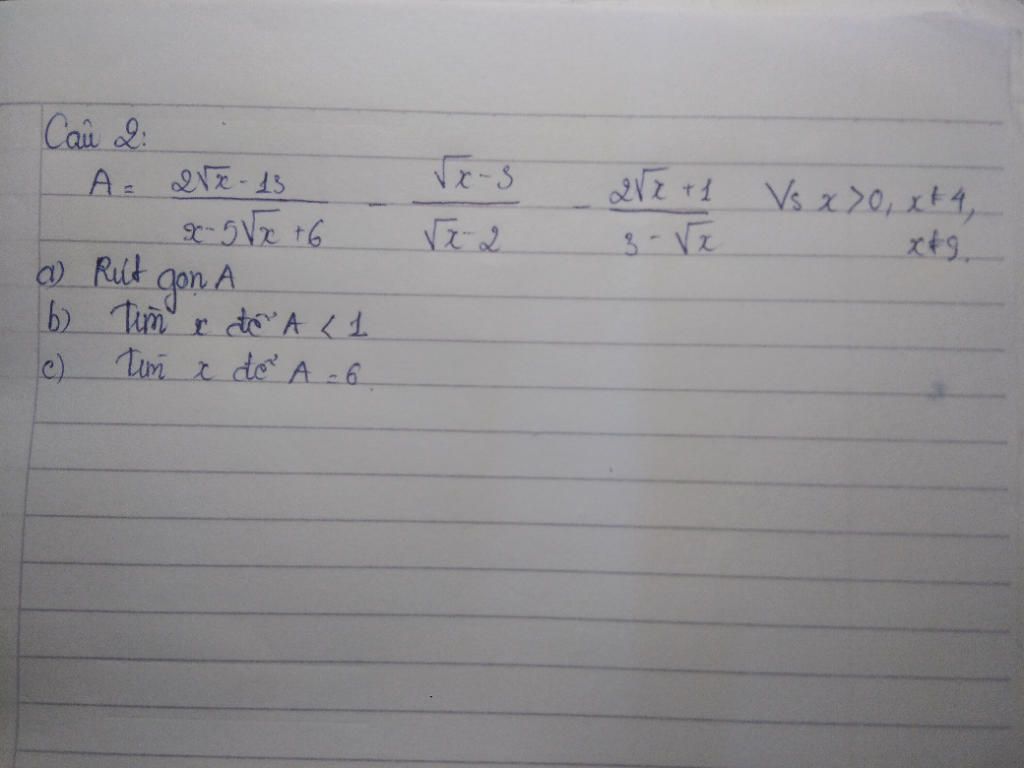 Câu 2:
A = \frac{2\sqrt{x} - 13}{x - 5\sqrt{x} + 6} - \frac{\sqrt{x} - 3}{\sqrt{x} - 2} - \frac{2\sqrt{x} + 1}{3 - \sqrt{x}} Vs x > 0, x ≠ 4,
x ≠ 9.
a) Rút gọn A
b) Tìm x để A < 1
c) Tìm x để A = 6